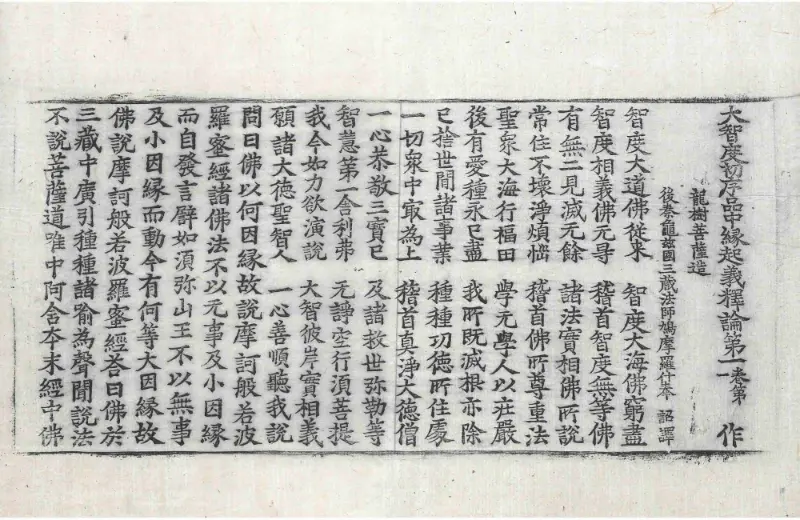 大智度初序品中緣起義釋論第一卷第一 作
龍樹菩薩造
後秦龜茲國三藏法師鳩摩羅什奉 詔譯
智度大道佛從来 智度大海佛窮盡
智度相義佛无㝵 稽首智度無等佛
有無二見滅无餘 諸法實相佛所說
常住不壞淨煩惱 稽首佛所尊重法
聖衆大海行福田 學无學人以莊嚴
後有愛種永已盡 我所既滅根亦除
已捨世間諸事業 種種功德所住處
一切衆中㝡為上 稽首真淨大德僧
一心恭敬三寶已 及諸救世弥勒等
智慧第一舍利弗 无諍空行須菩提
我今如力欲演說 大智彼岸實相義
願諸大德聖智人 一心善順聽我說
問曰佛以何因緣故說摩訶般若波
羅蜜經諸佛法不以无事及小因緣
而自發言譬如須弥山王不以無事
及小因緣而動今有何等大因緣故
佛說摩訶般若波羅蜜經荅曰佛於
三藏中廣引種種諸喻為聲聞說法
不說菩薩道唯中阿含夲末經中佛